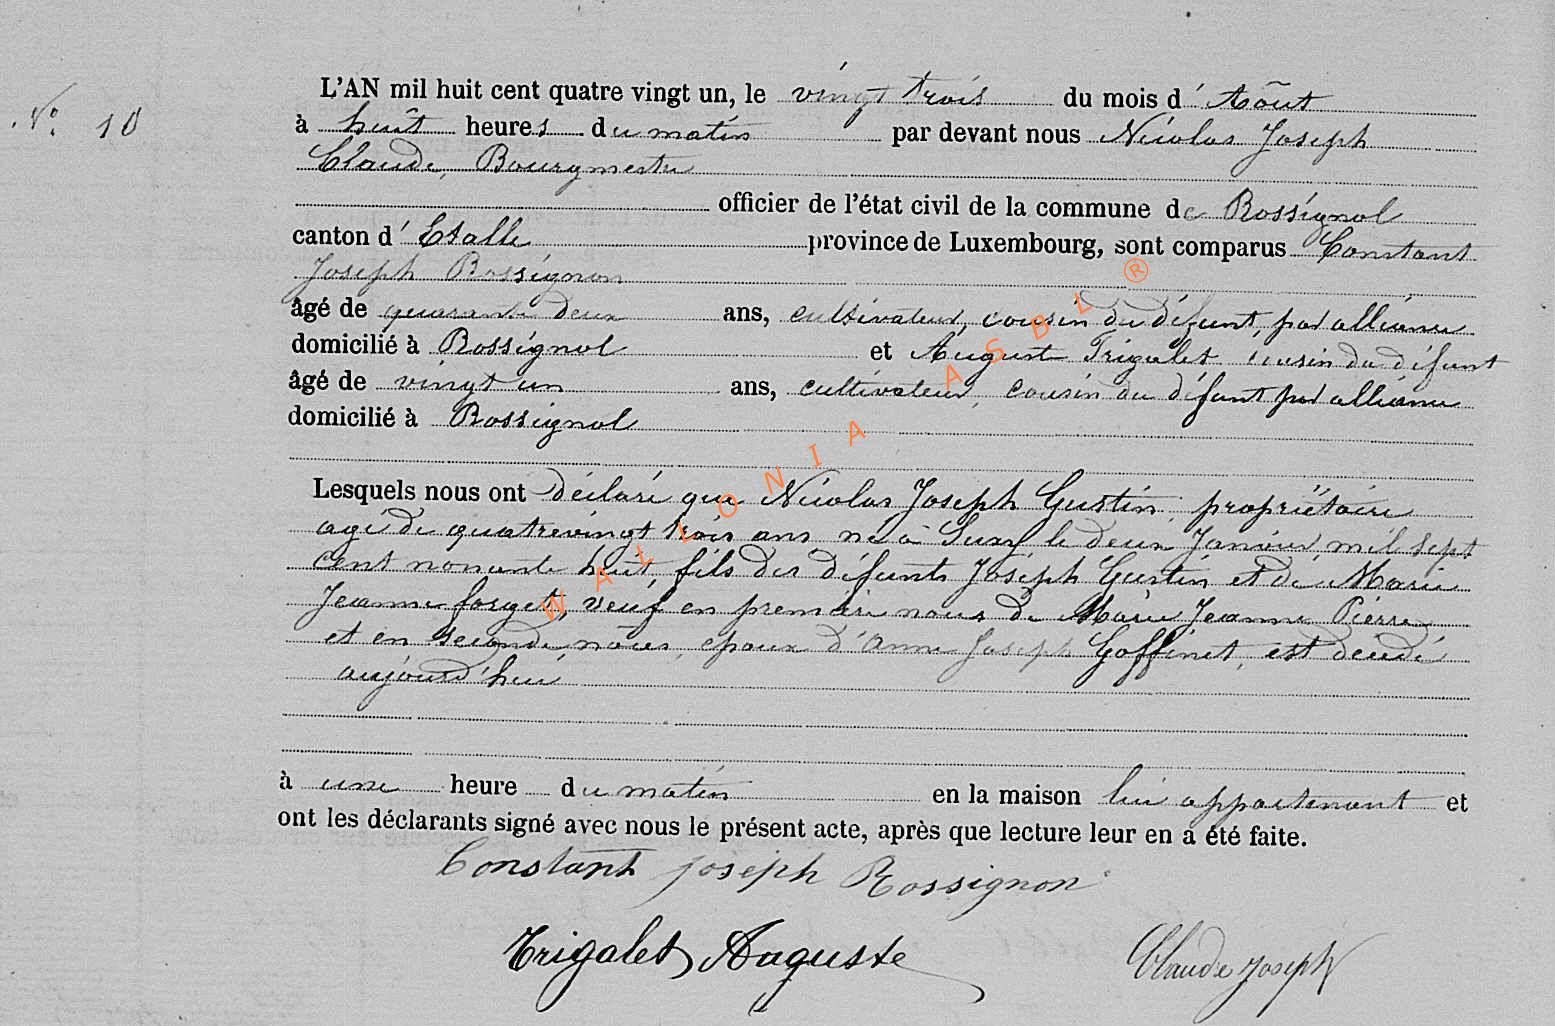 N° 10
L'AN mil huit cent quatre vingt un, le vingt trois du mois d'Août
à huit heures du matin par devant nous Nicolas Joseph
Claude, Bourgmestre
officier de l'état civil de la commune de Rossignol
canton d'Etalle province de Luxembourg, sont comparus Constant
Joseph Rossignon
âgé de quarante deux ans, cultivateur, cousin du défunt, par alliance
domicilié à Rossignol et August Trigalet cousin du défunt
âgé de vingt un ans, cultivateur, cousin du défunt par alliance
domicilié à Rossignol
Lesquels nous ont déclaré que Nicolas Joseph Gustin, propriétaire
agé de quatrevingt trois ans né à Suxy le deux Janvier mil sept
cent nonante huit, fils des défunts Joseph Gustin et de Marie
Jeanne forget, veuf en premiere noces de Marie Jeanne Pierre
et en seconde noces, epoux d'Anne Joseph Goffinet, est decédé
aujourd'hui
à une heure du matin en la maison lui appartenant et
ont les déclarants signé avec nous le présent acte, après que lecture leur en a été faite.
Constant joseph Rossignon
Trigalet Auguste Claude Joseph
WALLONIA ASBL ®